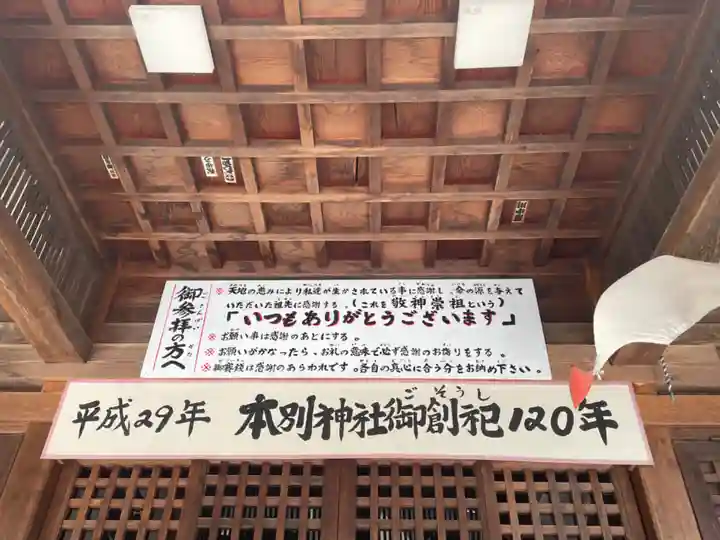 御参拝の方へ
※天地の恵みにより私達が生かされている事に感謝し、命の源を与えて
いただいた祖先に感謝する。(これを敬神崇祖という)
「いつもありがとうございます」
※お願い事は感謝のあとにする。
※お願いがかなったら、お礼の意味で必ず感謝のお参りをする。
※御賽銭は感謝のあらわれです。各自の真心に合う分をお納め下さい。
ごそうし
平成29年 本別神社御創祀120年